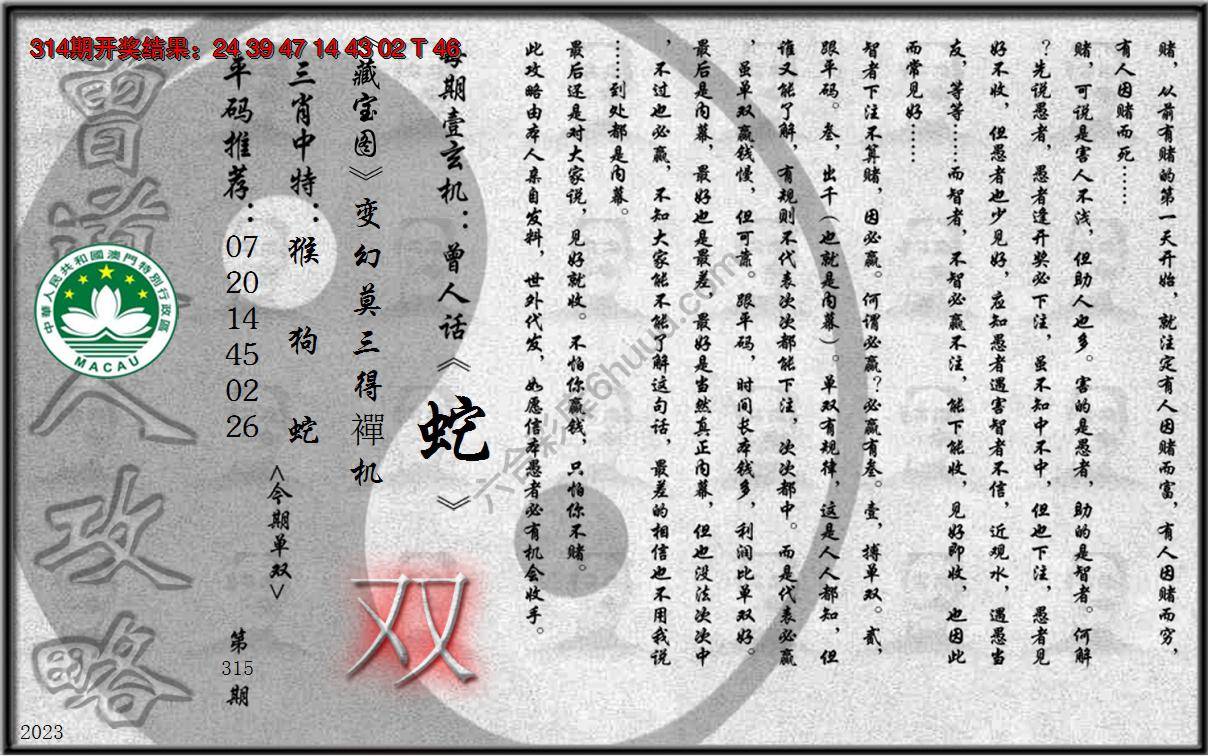 314期开奖结果：24 39 47 14 43 02 T 46
赌，从前有赌的第一天开始，就注定有人因赌而富，有人因赌而穷，
有人因赌而死……
赌，可说是害人不浅，但助人也多。害的是愚者，助的是智者。何解
？先说愚者，愚者逢开奖必下注，虽不知中不中，但也下注，愚者见
好不收，但愚者也少见好，应知愚者遇害智者不信，近观水，遇愚当
友，等等……而智者，不智必赢不注，能下能收，见好即收，也因此
而常见好……
智者下注不算赌，因必赢。何谓必赢？必赢有叁。壹，搏单双。贰，
跟平码。叁，出千（也就是内幕）。单双有规律，这是人人都知，但
谁又能了解，有规则不代表次次都能下注，次次都中。而是代表必赢
，虽单双赢钱慢，但可靠。跟平码，时间长本钱多，利润比单双好。
最后是内幕，最好也是最差，最好是当然真正内幕，但也没法次次中
，不过也必赢，不知大家能不能了解这句话，最差的相信也不用我说
……到处都是内幕。
最后还是对大家说，见好就收。不怕你赢钱，只怕你不赌。
此攻略由本人亲自发料，世外代发，如愿信本愚者必有机会收手。
每期壹玄机：曾人话《蛇》
《藏宝图》变幻莫三得禪机
双
三肖中特：猴 狗 蛇
平码推荐：07 20 14 45 02 26
<今期单双>
第315期
曾道人攻略
中華人民共和國澳門特別行政區
MACAU
六合彩库6huuu.com
2023